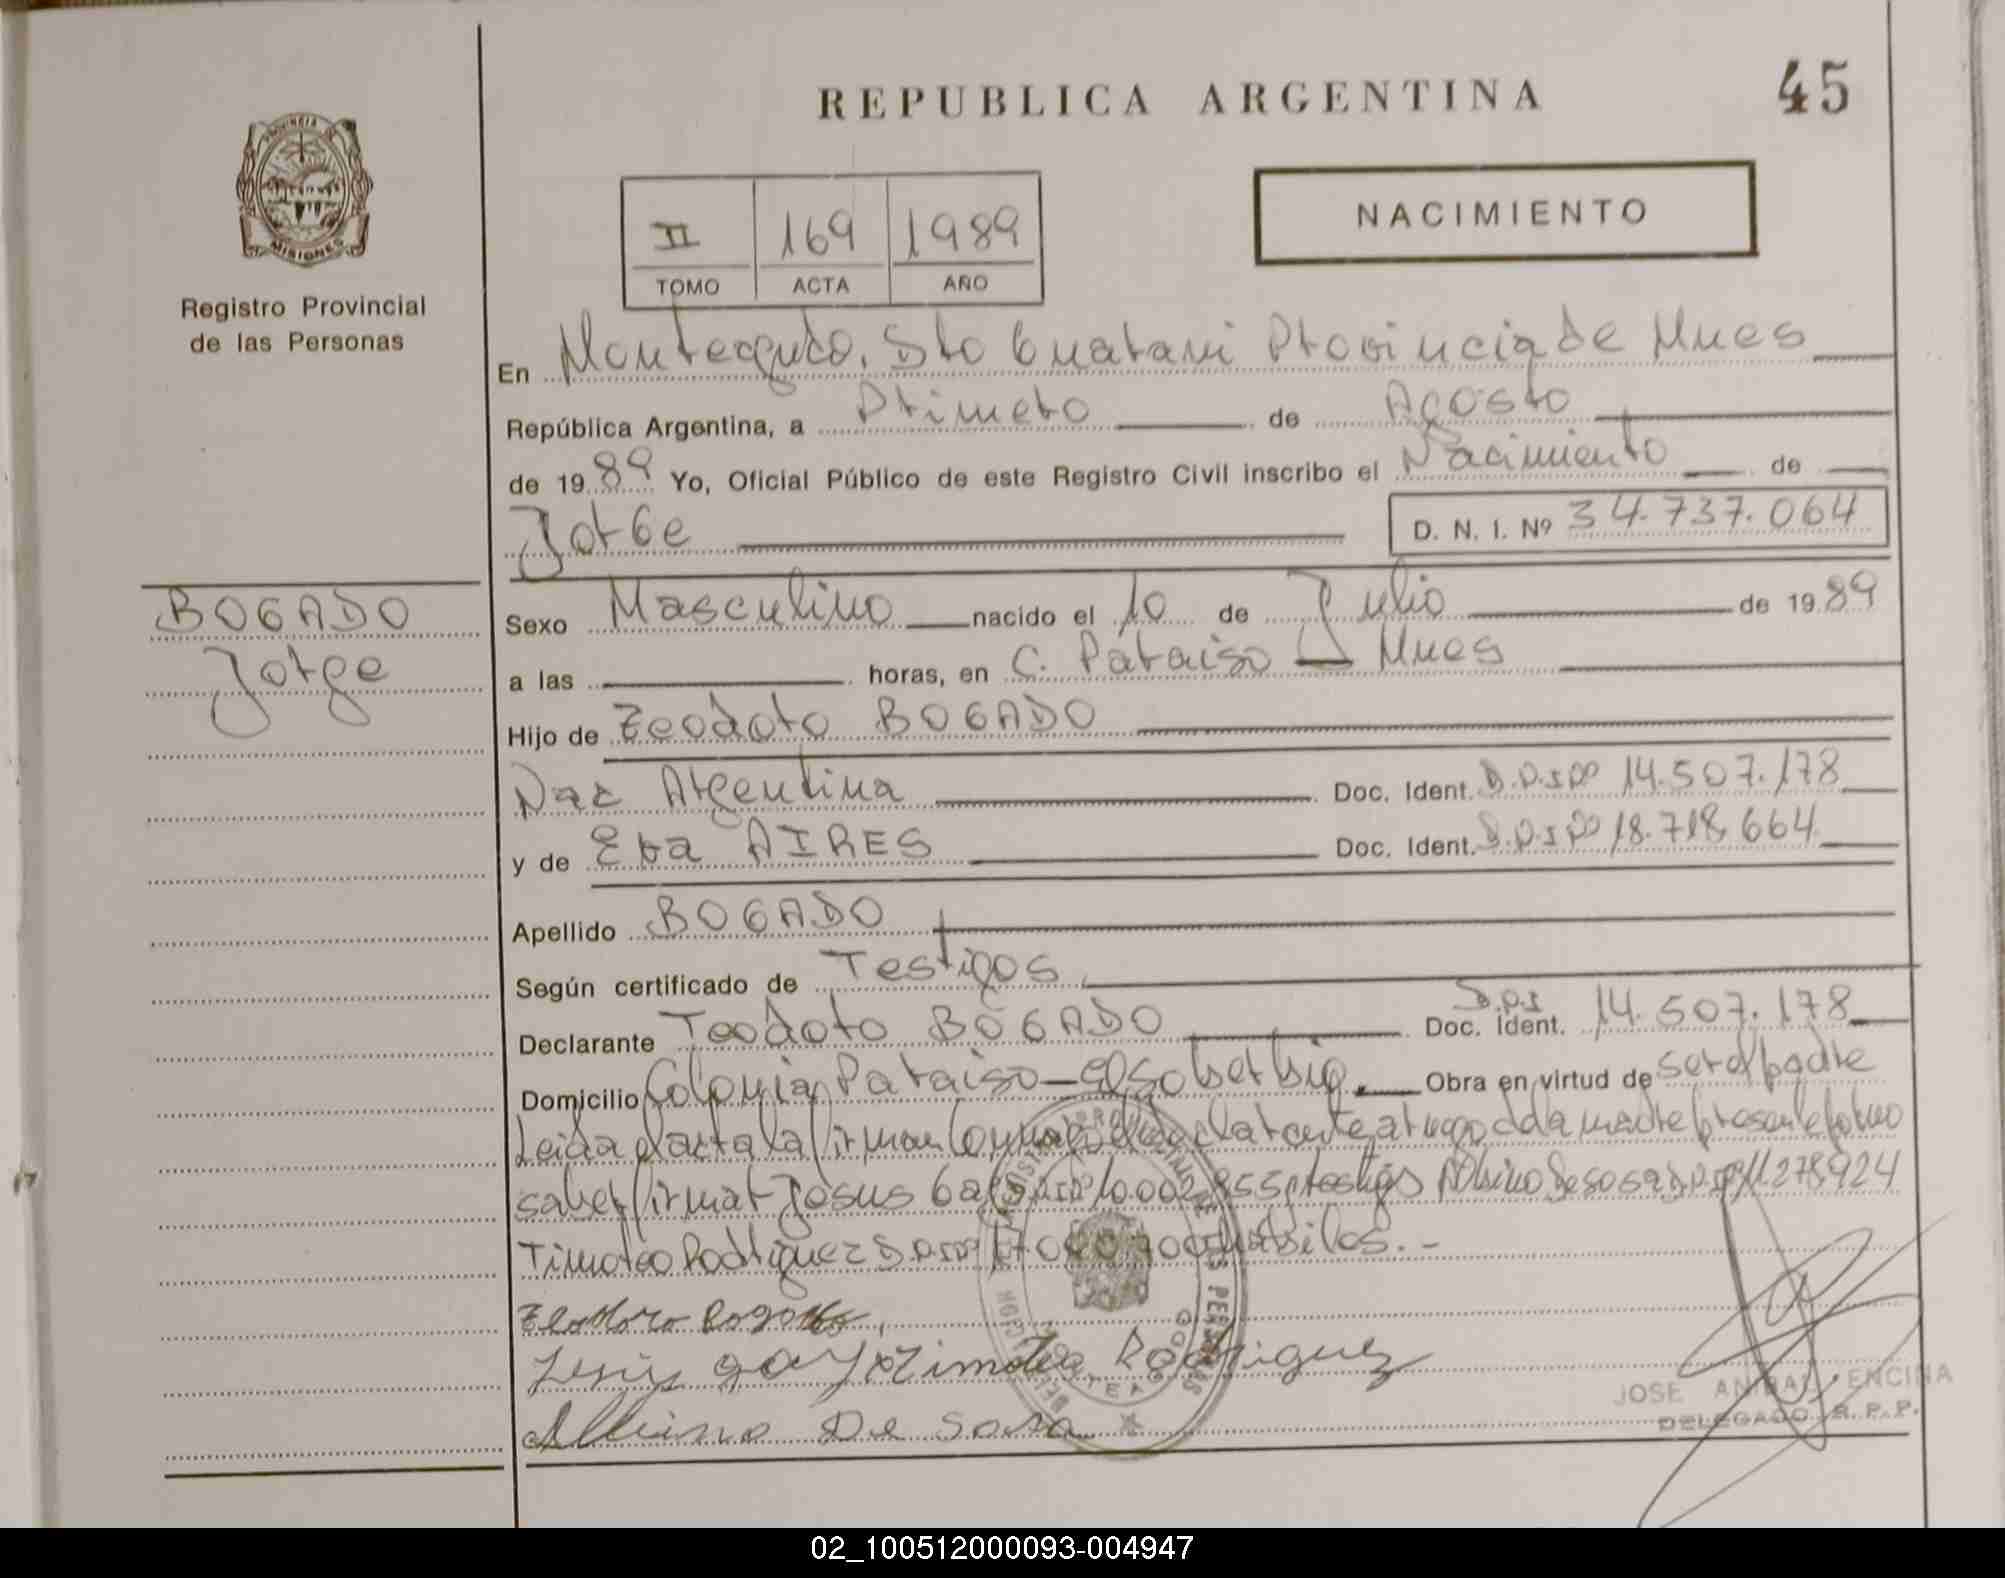 REPUBLICA ARGENTINA
45
PROVINCIA DE
MISIONES
Registro Provincial
de las Personas
II 169 1989
TOMO ACTA AÑO
NACIMIENTO
En Monteagudo, Dto Guarani Provincia de Mnes
República Argentina, a Primero de Agosto
de 1989 Yo, Oficial Público de este Registro Civil inscribo el Nacimiento de
Jorge D. N. I. Nº 34.737.064
BOGADO
Jorge
Sexo Masculino nacido el 10 de Julio de 1989
a las horas, en C. Paraiso Mnes
Hijo de Teodoro BOGADO
Nac Argentina Doc. Ident. 14.507.178
y de Eva AIRES Doc. Ident. 18.718.664
Apellido BOGADO
Según certificado de Testigos
Declarante Teodoro BOGADO Doc. Ident. 14.507.178
Domicilio Colonia Paraiso - El Soberbio. Obra en virtud de ser el padre
Leida el acta la firman declarante a ruego de la madre presente por no
saber firmar Jesus testigos Albino De Sosa 11.278.924
Timoteo Rodriguez habiles. -
Teodoro Bogado
Timoteo Rodriguez
Albino De Sosa
JOSE ANIBAL ENCINA
DELEGADO R. P. P.
02_100512000093-004947